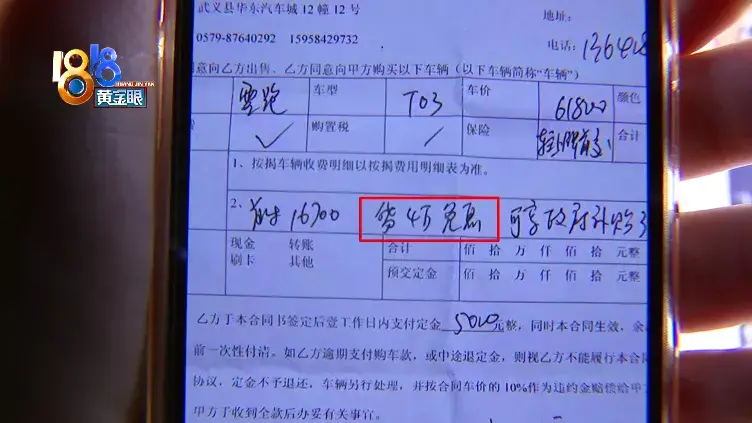 武义县华东汽车城12幢12号
地址:
0579-87640292 15958429732
电话:
1818
黄金眼
同意向乙方出售、乙方同意向甲方购买以下车辆(以下车辆简称"车辆")
车型 T03 车价 61800 颜色
✓ 购置税 / 保险 合计
1、按揭车辆收费明细以按揭费用明细表为准。
2、 16700 贷4万免息 可享政府补贴
现金 转账 合计 佰 拾 万 仟 佰 拾 元整
刷卡 其他 预交定金 佰 拾 万 仟 佰 拾 元整
乙方于本合同书签定后壹工作日内支付定金 5000 元整,同时本合同生效,余
前一次性付清。如乙方逾期支付购车款,或中途退定金,则视乙方不能履行本合同
协议,定金不予退还,车辆另行处理,并按合同车价的10%作为违约金赔偿给甲
甲方于收到全款后办妥有关事宜。